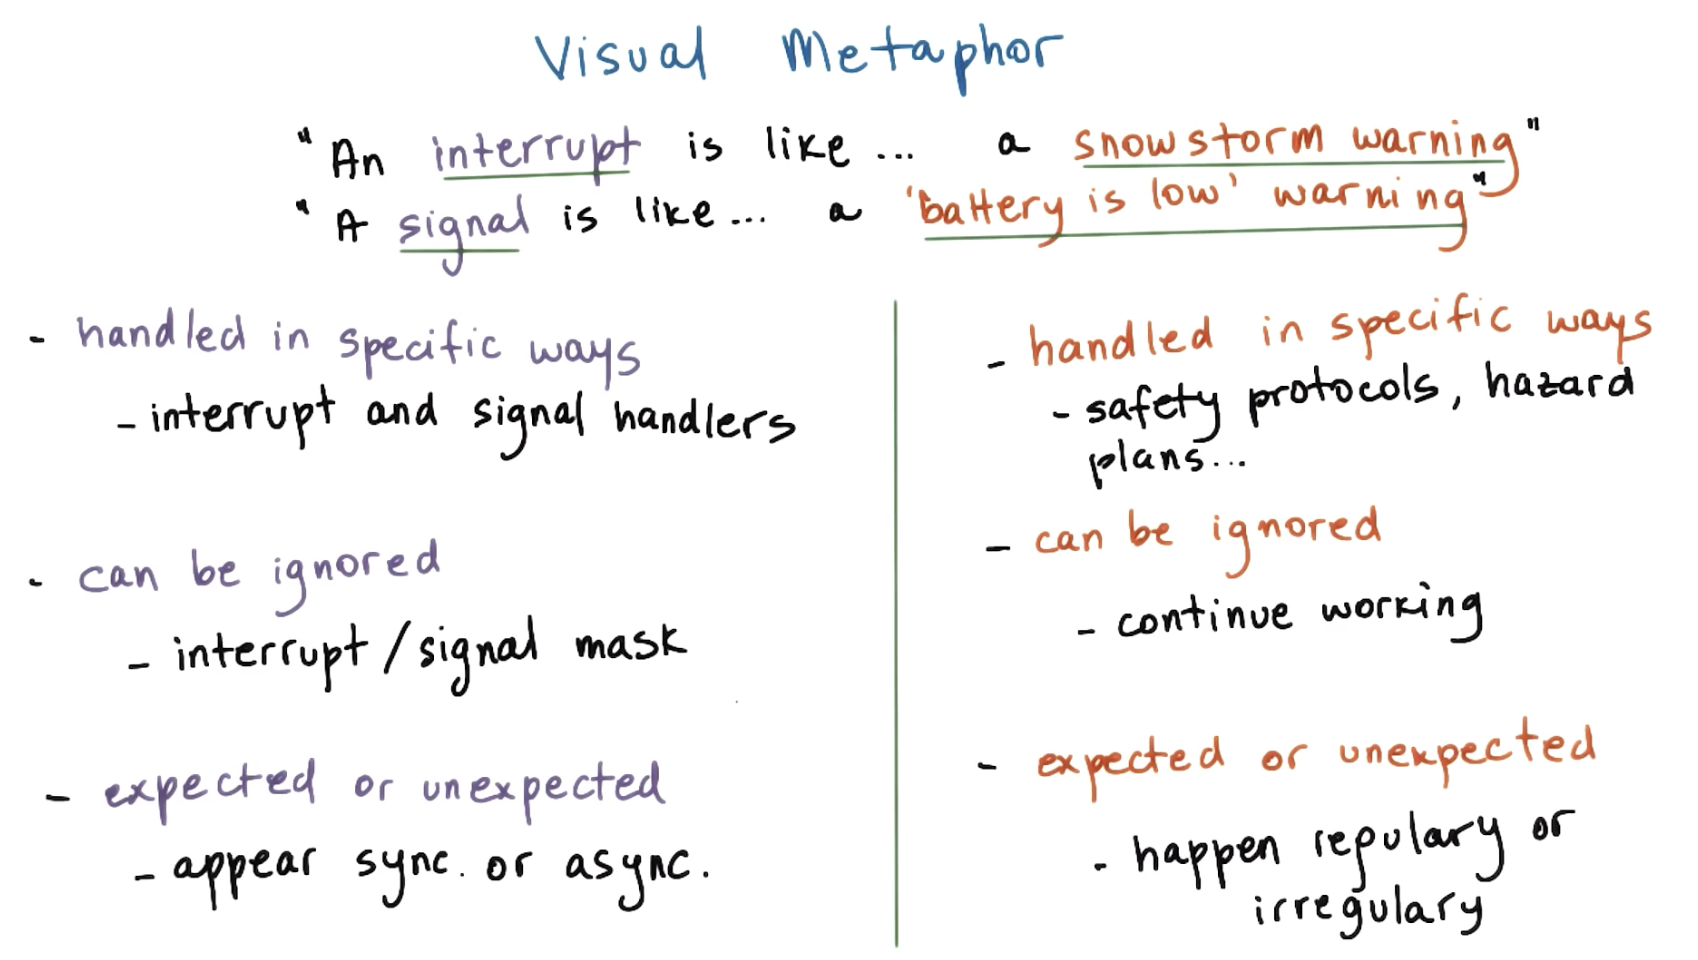 Visual Metaphor
"An interrupt is like... a snowstorm warning"
"A signal is like... a 'battery is low' warning"
- handled in specific ways
- interrupt and signal handlers
- can be ignored
- interrupt/signal mask
- expected or unexpected
- appear sync. or async.
- handled in specific ways
- safety protocols, hazard
plans...
- can be ignored
- continue working
- expected or unexpected
- happen regulary or
irregulary